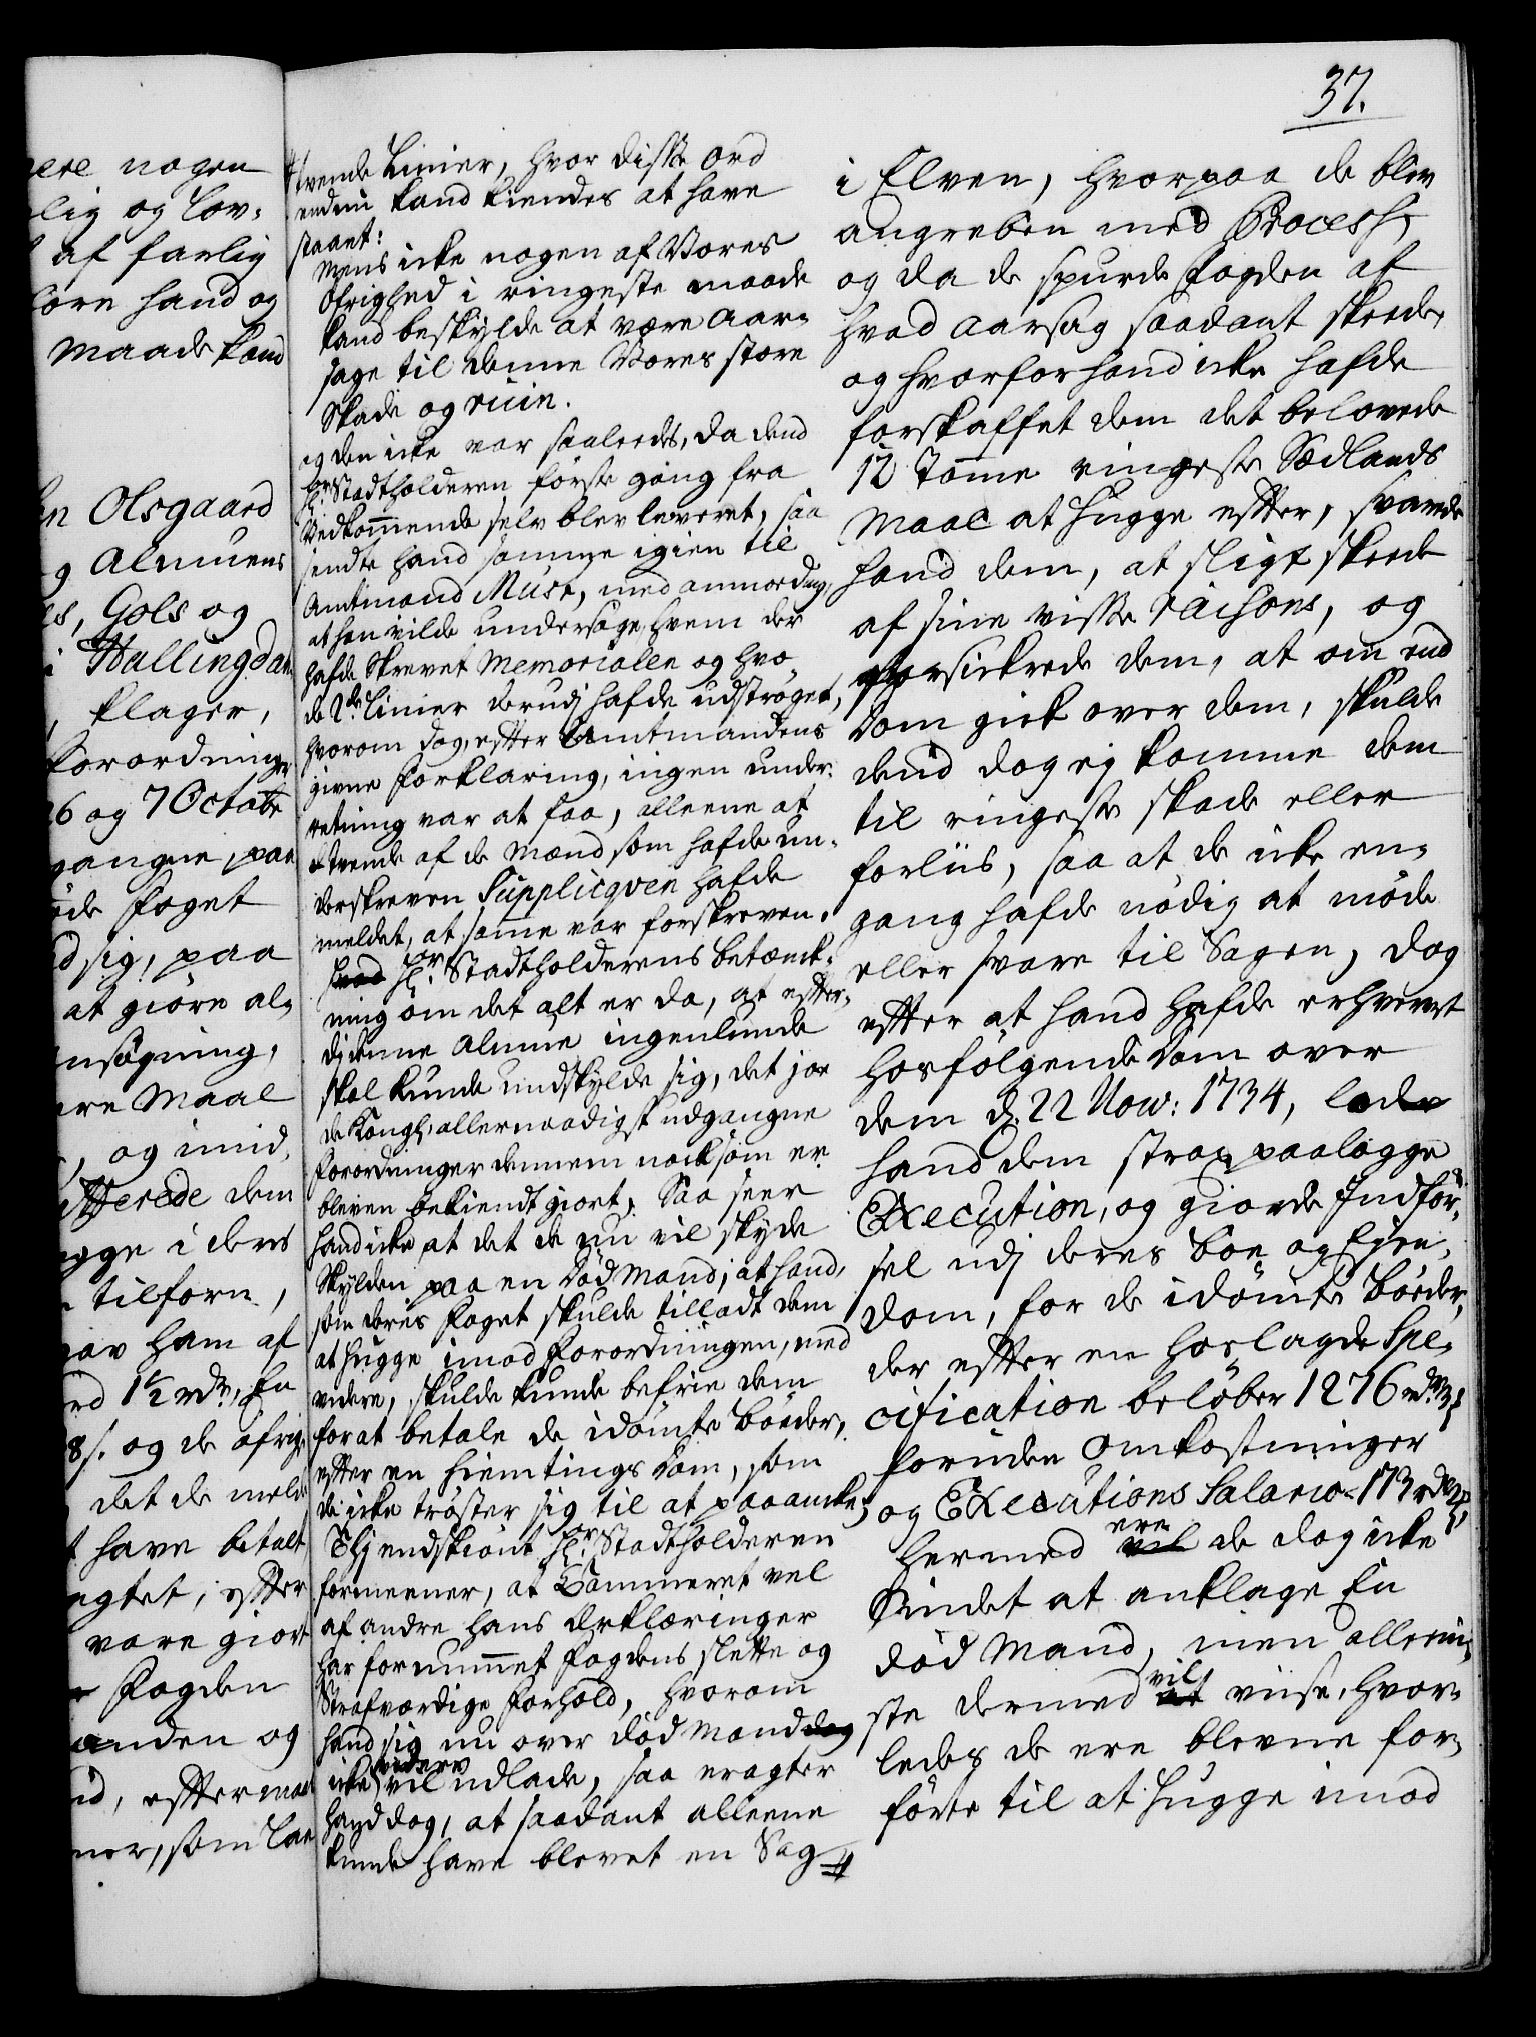 37.
nogen
lig og lov-
af farlig
hand og
maade kand
Olsgaard
Almuens
Gols og
i Hallingdal
, klager,
Forordninger
26 og 7 Octobr
gangne, paa
Foget
sig, paa
at giøre al-
nsøgning,
Maal
, og imid,
dem
i deres
tilforn,
ham af
1½ rdr, En
8 s. og de øfrige
det de meld
have betalt,
, efter
vare giort
Fogden
anden og
, efter
som
tvende Linier, hvor disse ord
endnu kand kiendes at have
staaet:
Mens icke nogen af Vores
Øfrighed i ringeste maade
kand beskylde at være aar-
sage til denne Vores store
Skade og ruin.
og den icke var saaleedes, da dend
Hr: Stadtholderen første gang fra
Vedkommende selv blev leveret, saa
sendte hand samme igien til
Amtmand Must, med anmodning,
at han vilde undersøge, hvem der
hafde Skrevet Memorialen og hvo
de 2de Linier derudj hafde udstrøget,
hvorom dog, efter Amtmandens
givne Forklaring, ingen under-
retning var at faa, alleene at
tvende af de Mænd som hafde un-
derskreven Suppliqven hafde
meldet, at samme var forskreven.
Hr: Stadtholderens betænk-
ning om det alt er da, at efter-
dj denne Almue ingenlunde
skal kunde undskylde sig, det jo
de Kongl: allernaadigst udgangne
Forordninger dennem nocksom er
bleven bekiendtgiort, Saa seer
hand icke at det de nu vil skyde
Skylden paa en død Mand, at hand,
som deres Foget skulde tilladt dem
at hugge imod Forordningen, med
videre, skulde kunde befrie dem
for at betale de idømte Bøder,
efter en Hiemtings Dom, som
de icke trøster sig til at paaanke,
Thj endskiønt Hr: Stadtholderen
formeener, at Cammeret vel
af andre hans Erklæringer
har fornummet Fogdens slette og
Strafværdige Forhold, hvorom
hand sig nu over død Mand dog
icke videre vil udlade, saa eragter
hand dog, at saadant alleene
kunde have blevet en Sag
i Elven, hvorpaa de blev
angreben med Process,
og da de spurde Fogden af
hvad aarsag saadant skeede,
og hvorfor hand icke hafde
forskaffet dem det belovede
12 Tomme ringeste Sædlands
Maal at hugge efter, svarede
hand dem, at sligt skeede
af sine visse raisons, og
forsickrede dem, at om end
Dom gick over dem, skulde
dend dog ej komme dem
til ringeste skade eller
forliis, saa at de icke en-
gang hafde nødig at møde
eller svare til Sagen, dog
efter at hand hafde erhvervet
hosfølgende Dom over
dem d. 22 Nov: 1734, lod
hand dem strax paalegge
Execution, og giorde Indfør-
sel udj deres boe og Eyen-
dom, for de idømte Bøeder,
der efter en hoslagde Spe-
cification beløber 1276 rdr
foruden Omkostninger
og Executions Salario 173 rdr
hermed ere de dog icke
Sindet at anklage En
død Mand, men alleeni-
ste dermed vil viise, hvor-
ledes de ere blevne for-
førte til at hugge imod